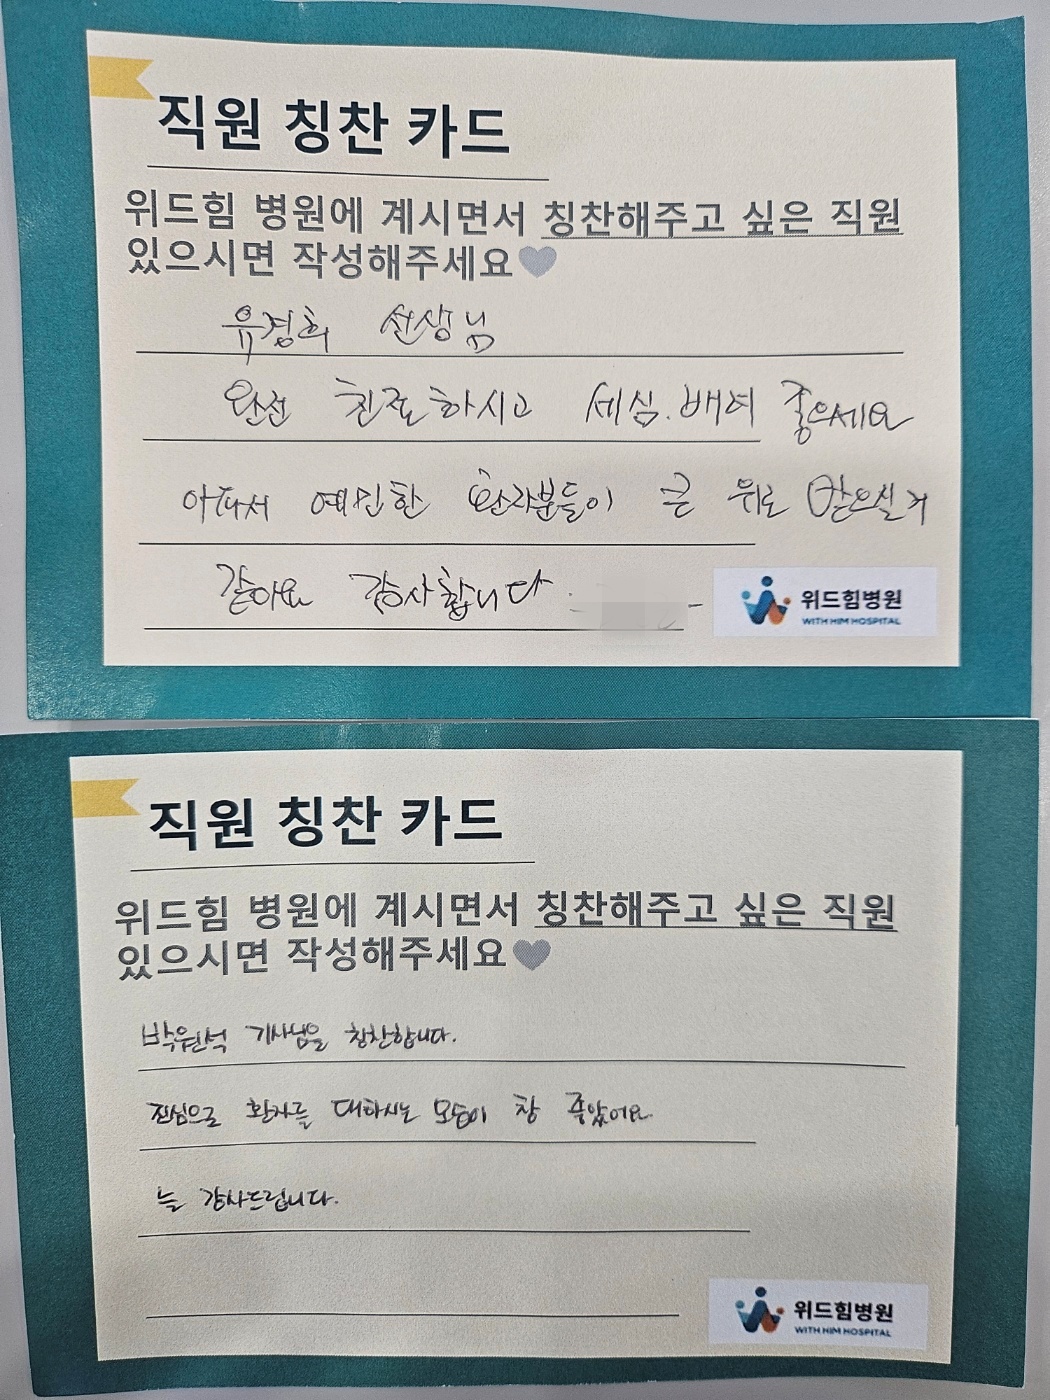 직원 칭찬 카드
위드힘 병원에 계시면서 칭찬해주고 싶은 직원
있으시면 작성해주세요
유경희 선생님
완전 친절하시고 세심.배려 좋으세요
아파서 예민한 환자분들이 큰 위로 받으실거
같아요 감사합니다
위드힘병원
WITH HIM HOSPITAL
직원 칭찬 카드
위드힘 병원에 계시면서 칭찬해주고 싶은 직원
있으시면 작성해주세요
박원석 기사님을 칭찬합니다.
진심으로 환자를 대하시는 모습이 참 좋았어요
늘 감사드립니다.
위드힘병원
WITH HIM HOSPITAL